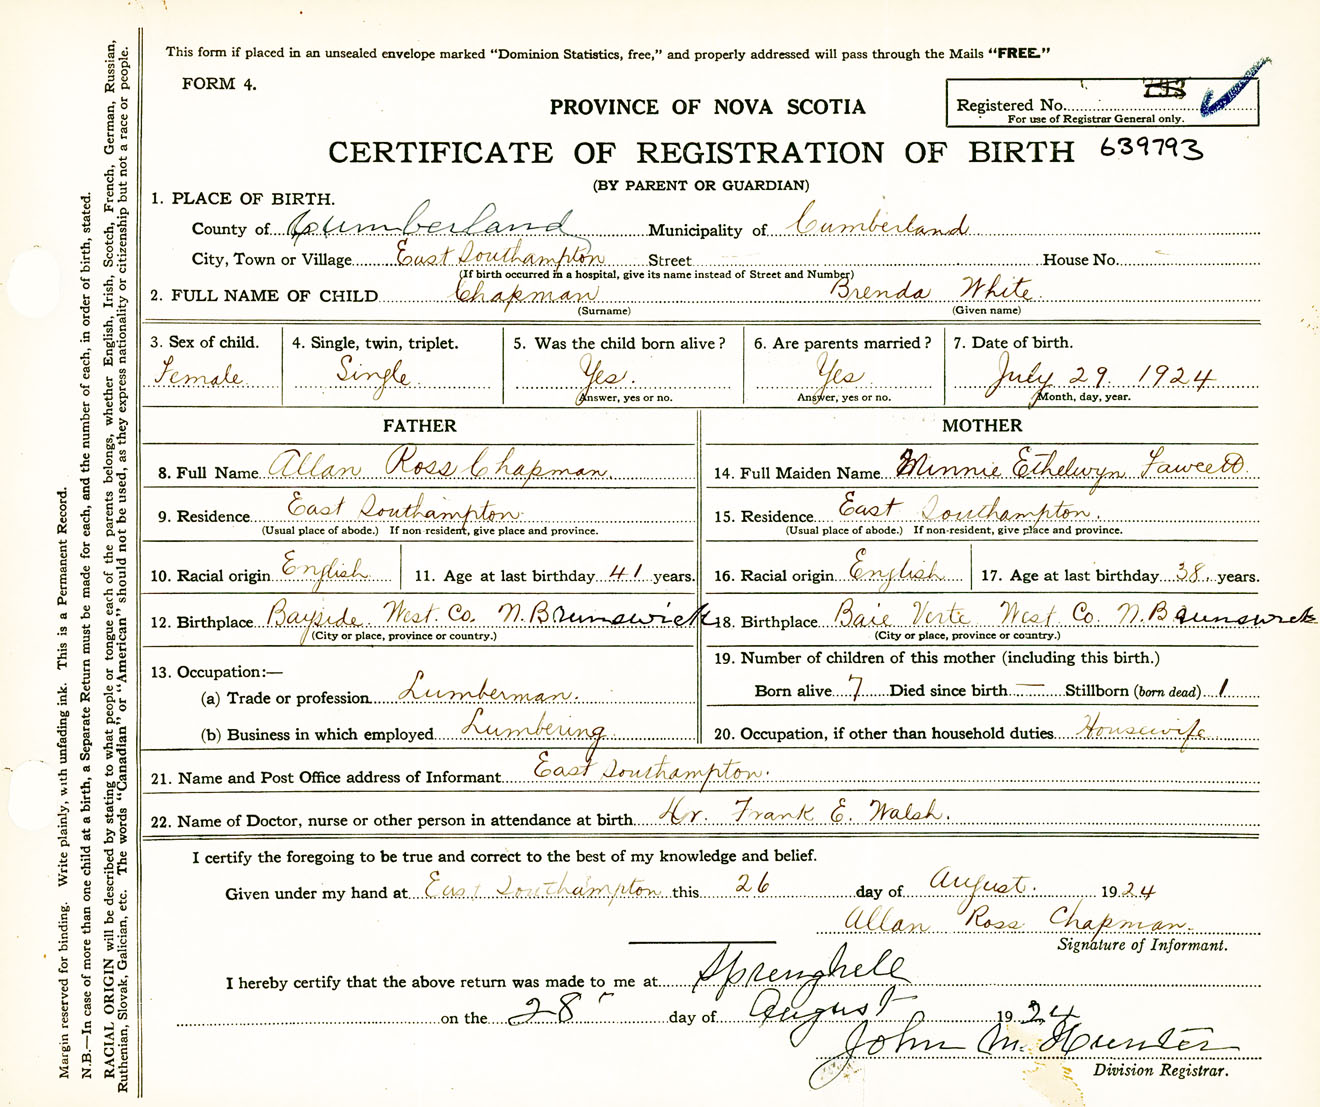 This form if placed in an unsealed envelope marked "Dominion Statistics, free," and properly addressed will pass through the Mails "FREE."
FORM 4.
PROVINCE OF NOVA SCOTIA
Registered No.
For use of Registrar General only.
CERTIFICATE OF REGISTRATION OF BIRTH 639793
(BY PARENT OR GUARDIAN)
1. PLACE OF BIRTH.
County of Cumberland Municipality of Cumberland
City, Town or Village East Southampton Street House No.
(If birth occurred in a hospital, give its name instead of Street and Number)
2. FULL NAME OF CHILD Chapman Brenda White
(Surname) (Given name)
3. Sex of child. 4. Single, twin, triplet. 5. Was the child born alive? 6. Are parents married? 7. Date of birth.
Female Single Yes. Yes July 29. 1924
Answer, yes or no. Answer, yes or no. Month, day, year.
FATHER MOTHER
8. Full Name Allan Ross Chapman. 14. Full Maiden Name Minnie Ethelwyn Fawcett.
9. Residence East Southampton. 15. Residence East Southampton.
(Usual place of abode.) If non-resident, give place and province. (Usual place of abode.) If non-resident, give place and province.
10. Racial origin English 11. Age at last birthday 41 years. 16. Racial origin English 17. Age at last birthday 38 years.
12. Birthplace Bayside. West. Co. N. Brunswick 18. Birthplace Baie Verte West Co. N. Brunswick
(City or place, province or country.) (City or place, province or country.)
19. Number of children of this mother (including this birth.)
13. Occupation:—
(a) Trade or profession Lumberman. Born alive 7 Died since birth — Stillborn (born dead) 1
(b) Business in which employed Lumbering 20. Occupation, if other than household duties Housewife
21. Name and Post Office address of Informant East Southampton.
22. Name of Doctor, nurse or other person in attendance at birth Dr. Frank E. Walsh.
I certify the foregoing to be true and correct to the best of my knowledge and belief.
Given under my hand at East Southampton this 26 day of August. 1924
Allan Ross Chapman.
Signature of Informant.
I hereby certify that the above return was made to me at Springhill
on the 28" day of August 1924
John M. Hunter
Division Registrar.
Margin reserved for binding. Write plainly, with unfading ink. This is a Permanent Record.
N.B.—In case of more than one child at a birth, a Separate Return must be made for each, and the number of each, in order of birth, stated.
RACIAL ORIGIN will be described by stating to what people or tongue each of the parents belongs, whether English, Irish, Scotch, French, German, Russian,
Ruthenian, Slovak, Galician, etc. The words "Canadian" or "American" should not be used, as they express nationality or citizenship but not a race or people.